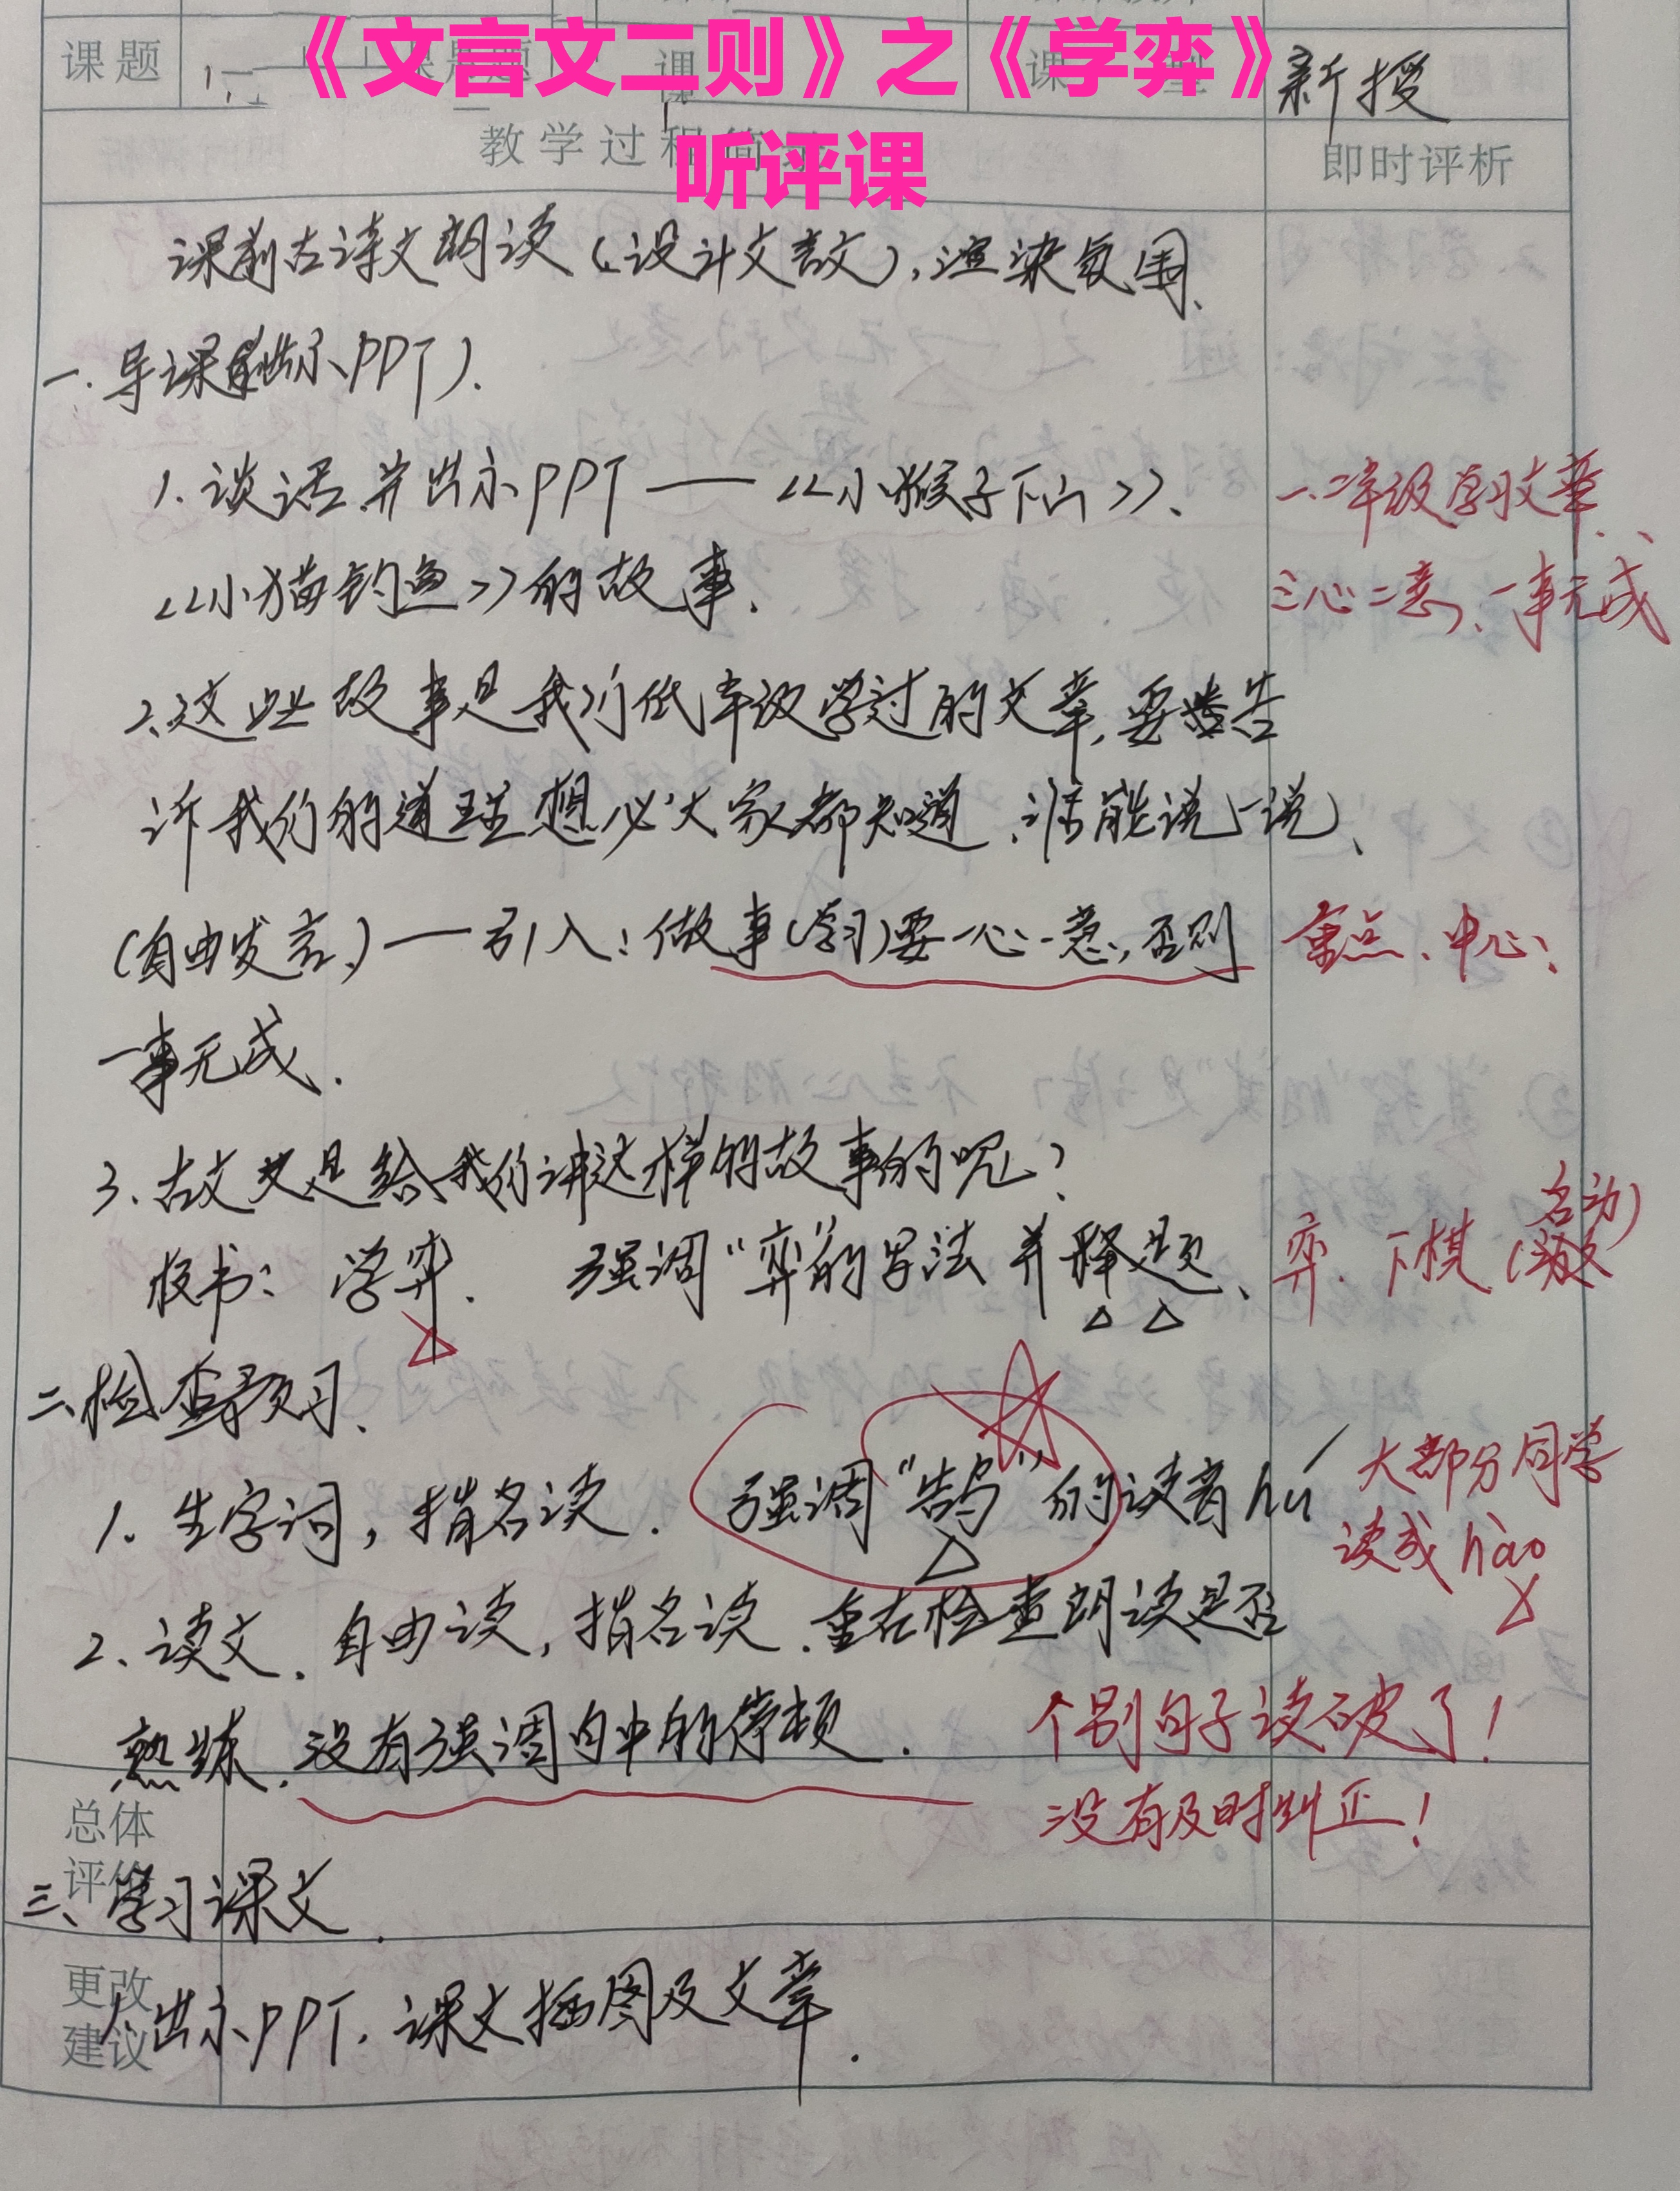 《文言文二则》之《学弈》
听评课
课题
课
课 型
新授
教学过程简
即时评析
课前古诗文朗读(设计文言文),渲染氛围、
一.导课(出示PPT).
1.谈话.并出示PPT——《小猴子下山》、
一.二年级学过文章、
《小猫钓鱼》的故事.
三心二意、一事无成
2.这些故事是我们低年级学过的文章,要告
诉我们的道理想必大家都知道.谁能说一说、
(自由发言.)——引入:做事(学习)要一心一意,否则
重点、中心:
一事无成.
3.古文又是给我们讲这样的故事的呢?
板书:学弈. 强调“弈”的写法并释题、
弈.下棋(动)
名动)
二、检查预习、
1.生字词,指名读. 强调“鹄”的读音hú
大部分同学
读成hào
2、读文.自由读,指名读.重在检查朗读是否
熟练.没有强调句中的停顿.
个别句子读破了!
没有及时纠正!
总体
评价
三、学习课文.
更改
建议
1.出示PPT.课文插图及文章.